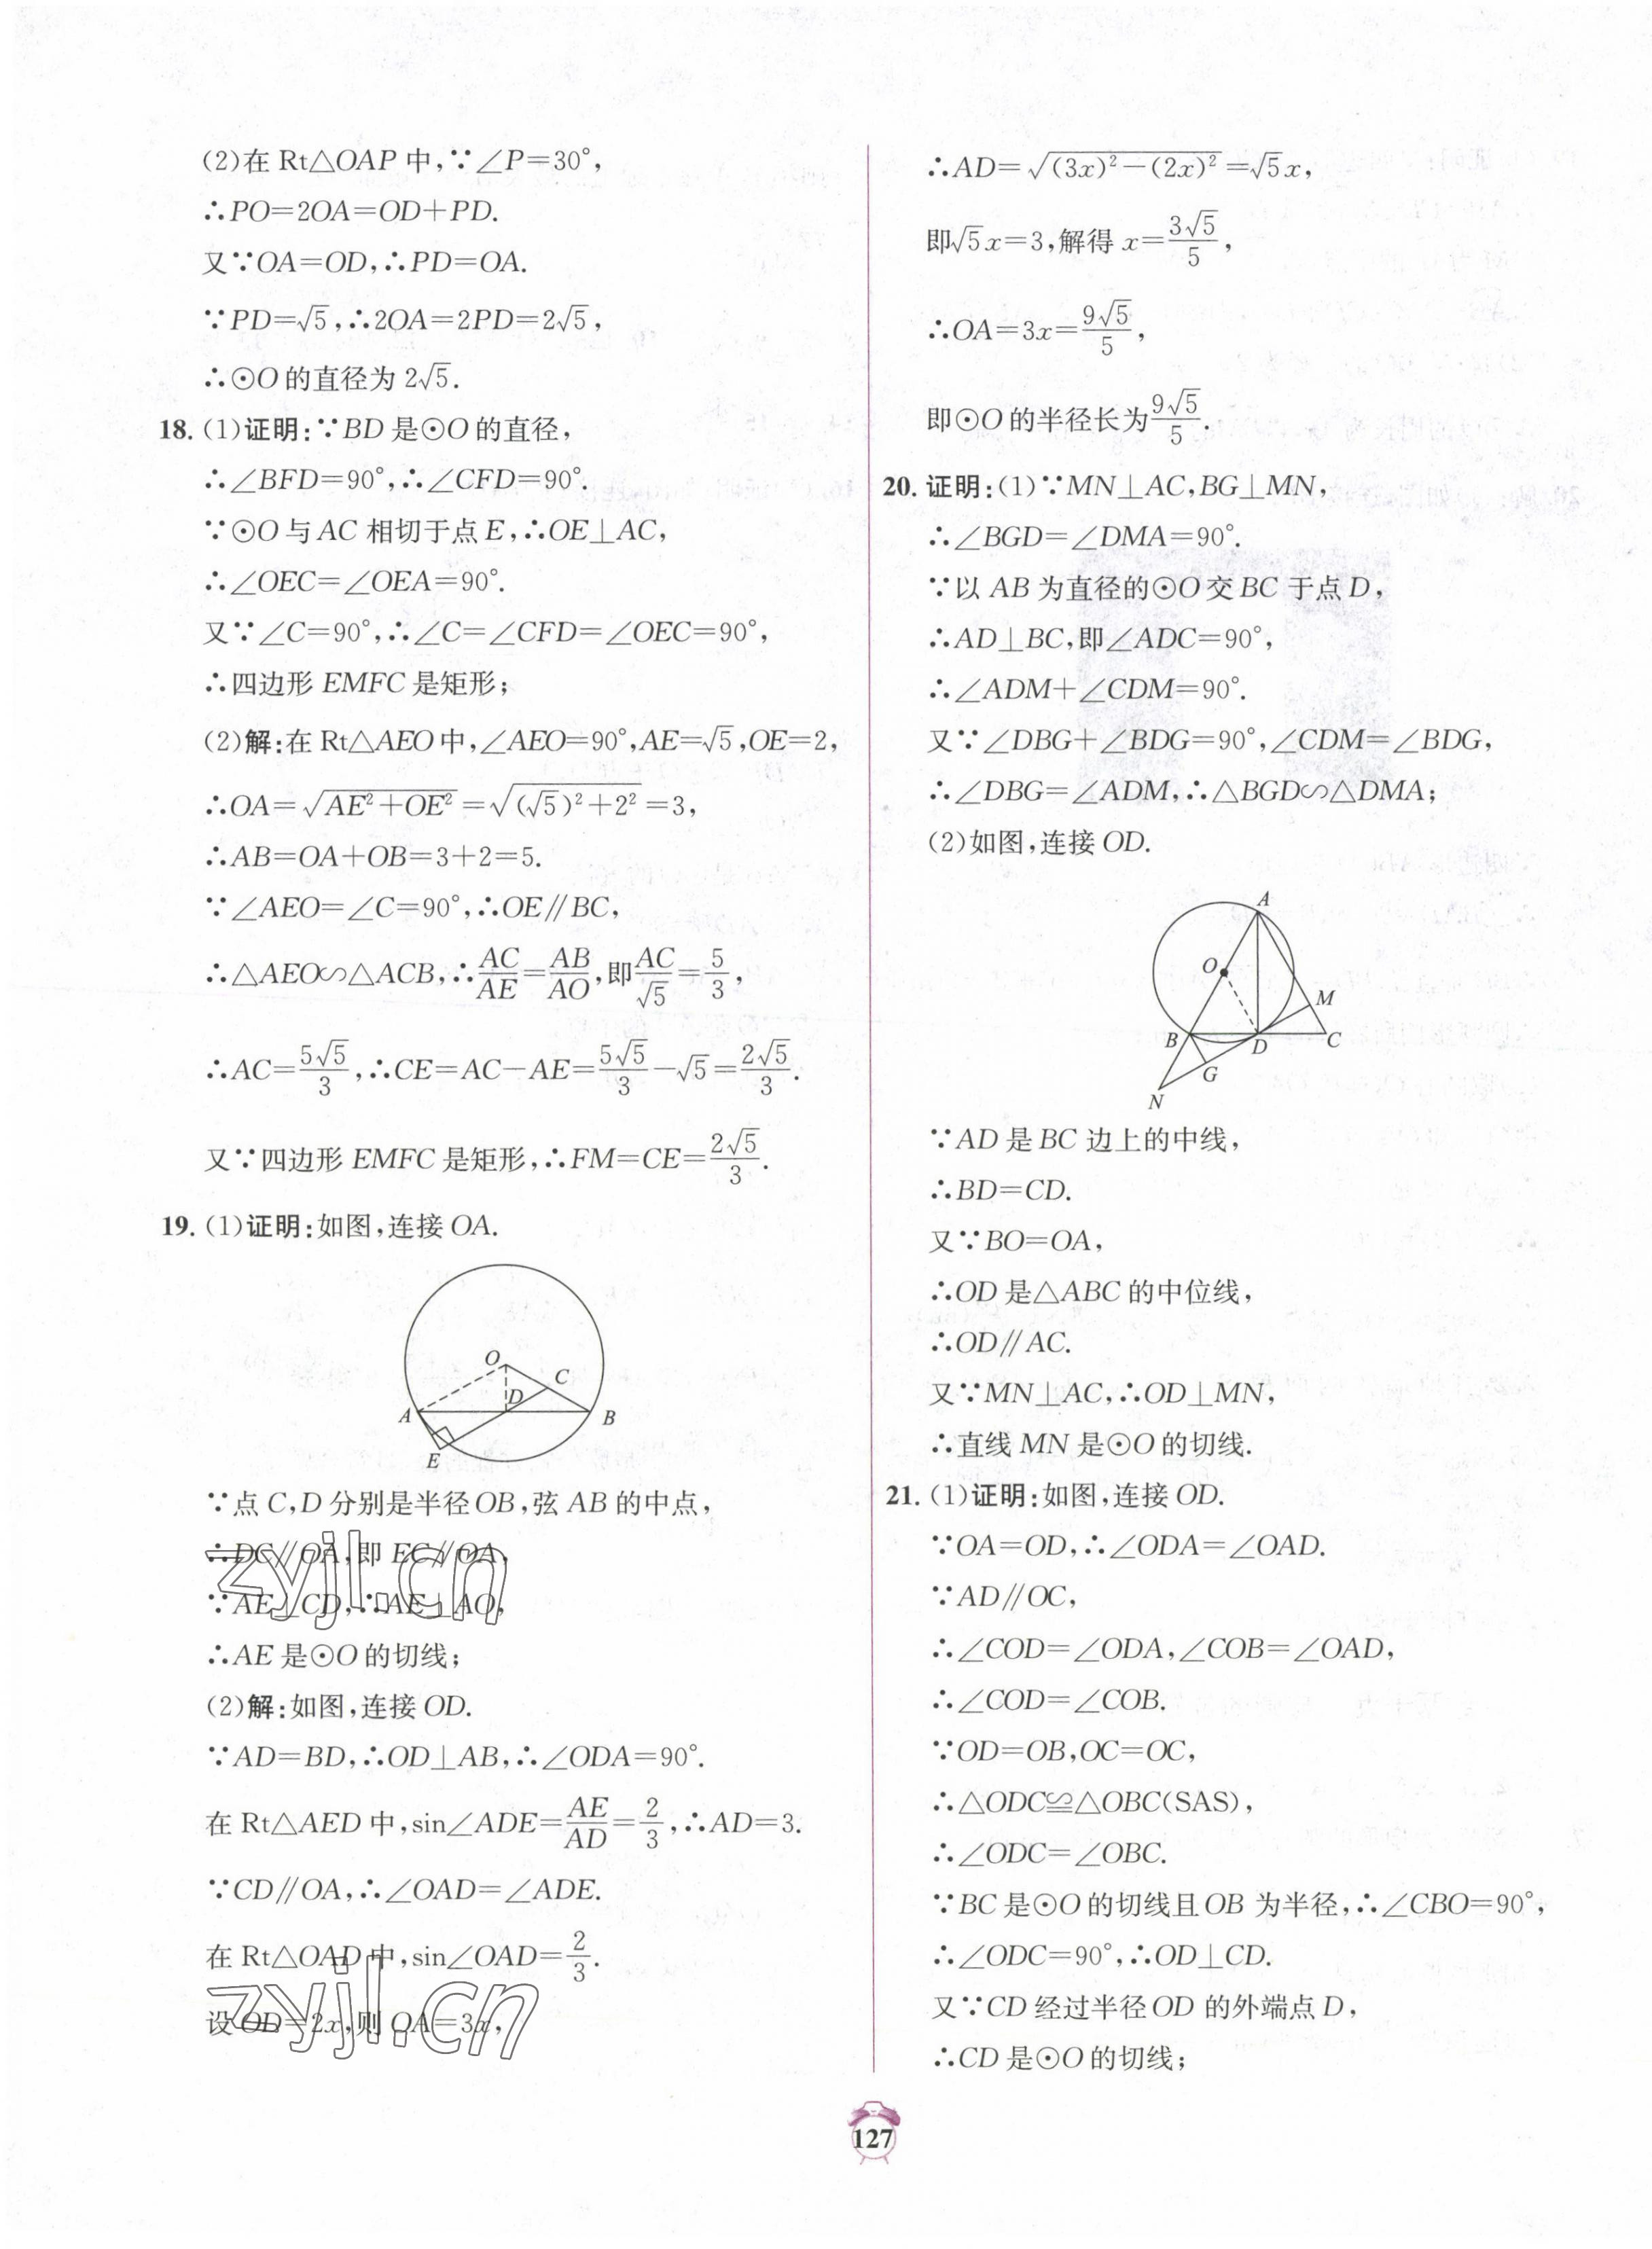 (2)在 Rt△OAP 中,∵∠P=30°,
∴PO=2OA=OD+PD.
又∵OA=OD,∴PD=OA.
∵PD=√5,∴2OA=2PD=2√5,
∴⊙O 的直径为 2√5.
18. (1)证明:∵BD 是⊙O 的直径,
∴∠BFD=90°,∴∠CFD=90°.
∵⊙O 与 AC 相切于点 E,∴OE⊥AC,
∴∠OEC=∠OEA=90°.
又∵∠C=90°,∴∠C=∠CFD=∠OEC=90°,
∴四边形 EMFC 是矩形;
(2)解:在 Rt△AEO 中,∠AEO=90°,AE=√5,OE=2,
∴OA=√(AE²+OE²)=√((√5)²+2²)=3,
∴AB=OA+OB=3+2=5.
∵∠AEO=∠C=90°,∴OE∥BC,
∴△AEO∽△ACB,∴AC/AE=AB/AO,即AC/√5=5/3,
∴AC=5√5/3,∴CE=AC-AE=5√5/3-√5=2√5/3.
又∵四边形 EMFC 是矩形,∴FM=CE=2√5/3.
19. (1)证明:如图,连接 OA.
O
C
D
A
B
E
∵点 C,D 分别是半径 OB,弦 AB 的中点,
∴DC∥OA,即 EC∥OA,
∵AE⊥CD,∴AE⊥AO,
zyjl.cn
∴AE 是⊙O 的切线;
(2)解:如图,连接 OD.
∵AD=BD,∴OD⊥AB,∴∠ODA=90°.
在 Rt△AED 中,sin∠ADE=AE/AD=2/3,∴AD=3.
∵CD∥OA,∴∠OAD=∠ADE.
在 Rt△OAD 中,sin∠OAD=2/3.
设 OD=2x,则 OA=3x,
zyjl.cn
∴AD=√((3x)²-(2x)²)=√5x,
即√5x=3,解得 x=3√5/5,
∴OA=3x=9√5/5,
即⊙O 的半径长为9√5/5.
20. 证明:(1)∵MN⊥AC,BG⊥MN,
∴∠BGD=∠DMA=90°.
∵以 AB 为直径的⊙O 交 BC 于点 D,
∴AD⊥BC,即∠ADC=90°,
∴∠ADM+∠CDM=90°.
又∵∠DBG+∠BDG=90°,∠CDM=∠BDG,
∴∠DBG=∠ADM,∴△BGD∽△DMA;
(2)如图,连接 OD.
A
O
M
B
D
C
G
N
∵AD 是 BC 边上的中线,
∴BD=CD.
又∵BO=OA,
∴OD 是△ABC 的中位线,
∴OD∥AC.
又∵MN⊥AC,∴OD⊥MN,
∴直线 MN 是⊙O 的切线.
21. (1)证明:如图,连接 OD.
∵OA=OD,∴∠ODA=∠OAD.
∵AD∥OC,
∴∠COD=∠ODA,∠COB=∠OAD,
∴∠COD=∠COB.
∵OD=OB,OC=OC,
∴△ODC≌△OBC(SAS),
∴∠ODC=∠OBC.
∵BC 是⊙O 的切线且 OB 为半径,∴∠CBO=90°,
∴∠ODC=90°,∴OD⊥CD.
又∵CD 经过半径 OD 的外端点 D,
∴CD 是⊙O 的切线;
127